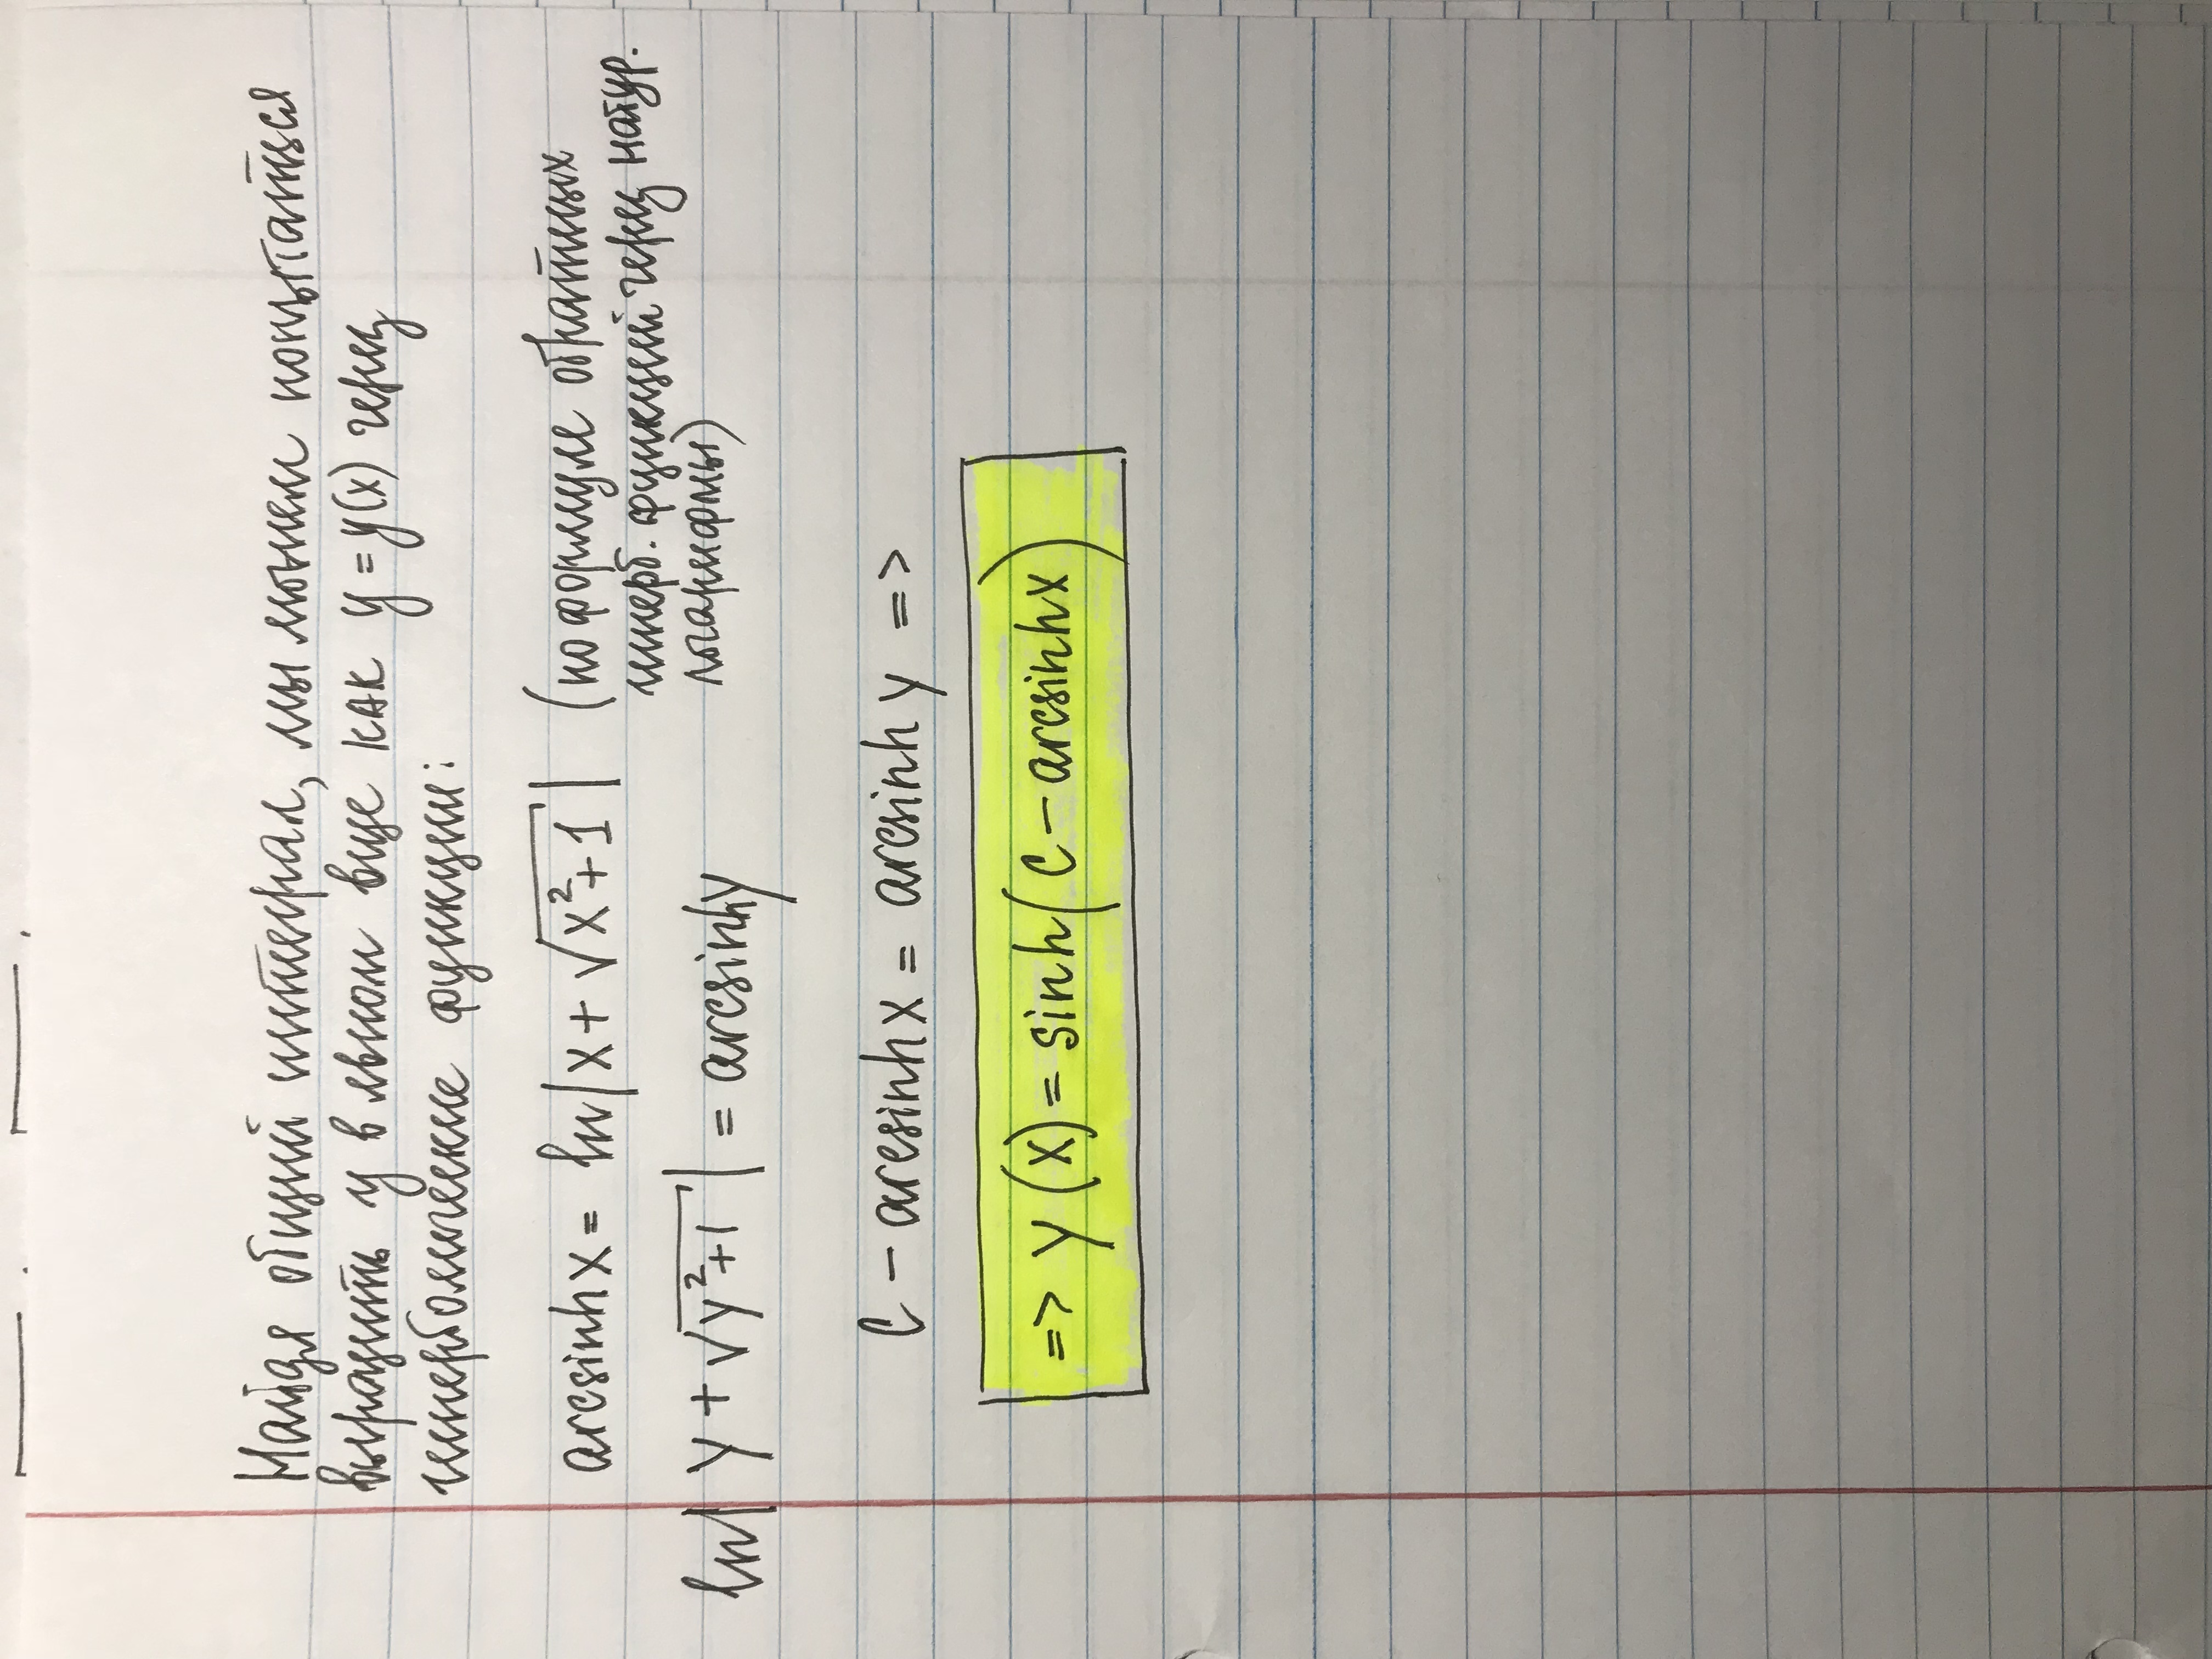 Найдя общий интеграл, мы можем попытаться
выразить y в явном виде как y = y(x) через
гиперболические функции:
arcsinh x = ln|x + √(x²+1)| (по формуле обратных
гиперб. функций через натур.
логарифмы)
ln|y + √(y²+1)| = arcsinh y
C − arcsinh x = arcsinh y =>
=> y(x) = sinh(C − arcsinh x)